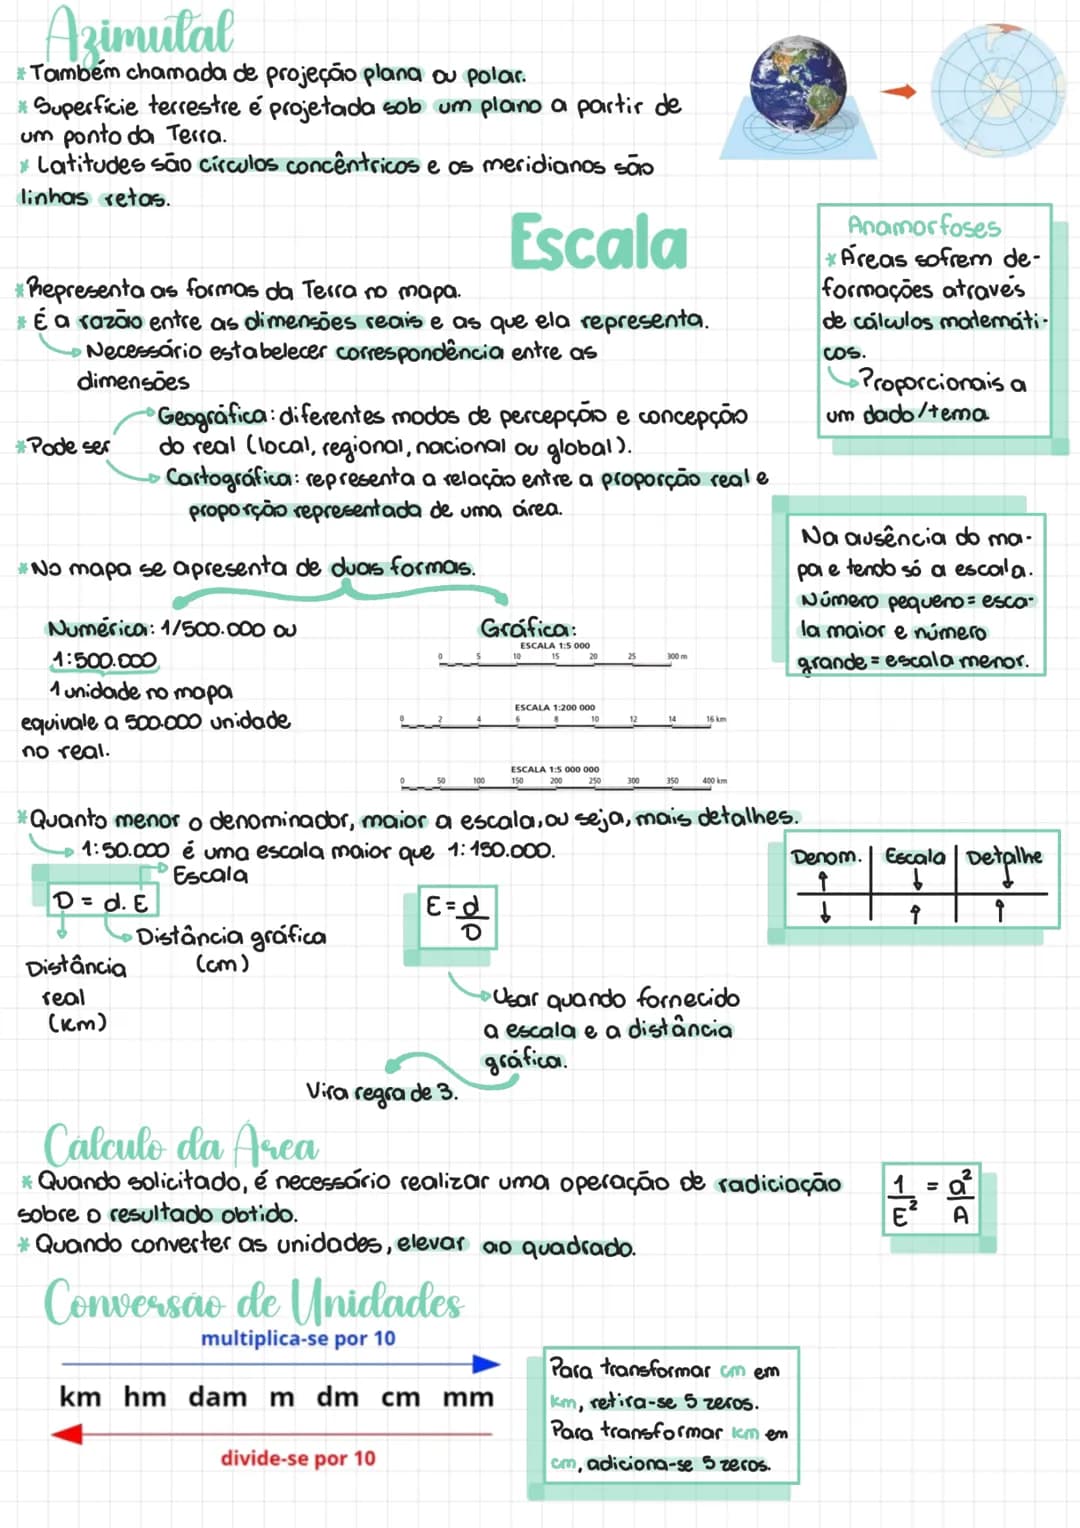 Azimutal
* Também chamada de projeção plana ou polar.
* Superfície terrestre é projetada sob um plano a partir de
um ponto da Terra.
* Latitudes são círculos concêntricos e os meridianos são
linhas retas.
Escala
* Representa as formas da Terra no mapa.
* É a razão entre as dimensões reais e as que ela representa.
Necessário estabelecer correspondência entre as
dimensões
* Pode ser
Geográfica: diferentes modos de percepção e concepção
do real (local, regional, nacional ou global).
Cartográfica: representa a relação entre a proporção real e
proporção representada de uma área.
Anamorfoses
* Áreas sofrem de-
formações através
de cálculos matemáti-
cos.
Proporcionais a
um dado/tema
Na ausência do ma-
pa e tendo só a escala.
Número pequeno = esca-
la maior e número
grande = escala menor.
* No mapa se apresenta de duas formas.
Numérica: 1/500.000 ou
1:500.000
1 unidade no mapa
equivale a 500.000 unidade
no real.
Gráfica:
ESCALA 1:5 000
0 5 10 15 20 25 300 m
ESCALA 1:200 000
0 2 4 6 8 10 12 14 16 km
ESCALA 1:5 000 000
0 50 100 150 200 250 300 350 400 km
* Quanto menor o denominador, maior a escala, ou seja, mais detalhes.
1:50.000 é uma escala maior que 1:150.000.
Escala
D = d. E
Distância gráfica
(cm)
Distância
real
(Km)
E = d
D
Usar quando fornecido
a escala e a distância
gráfica.
Vira regra de 3.
Denom. Escala Detalhe
↑ ↓ ↓
↓ ↑ ↑
Cálculo da Área
* Quando solicitado, é necessário realizar uma operação de radiciação
sobre o resultado obtido.
* Quando converter as unidades, elevar ao quadrado.
1 = a²
E² A
Conversão de Unidades
multiplica-se por 10
km hm dam m dm cm mm
divide-se por 10
Para transformar cm em
km, retira-se 5 zeros.
Para transformar km em
cm, adiciona-se 5 zeros.